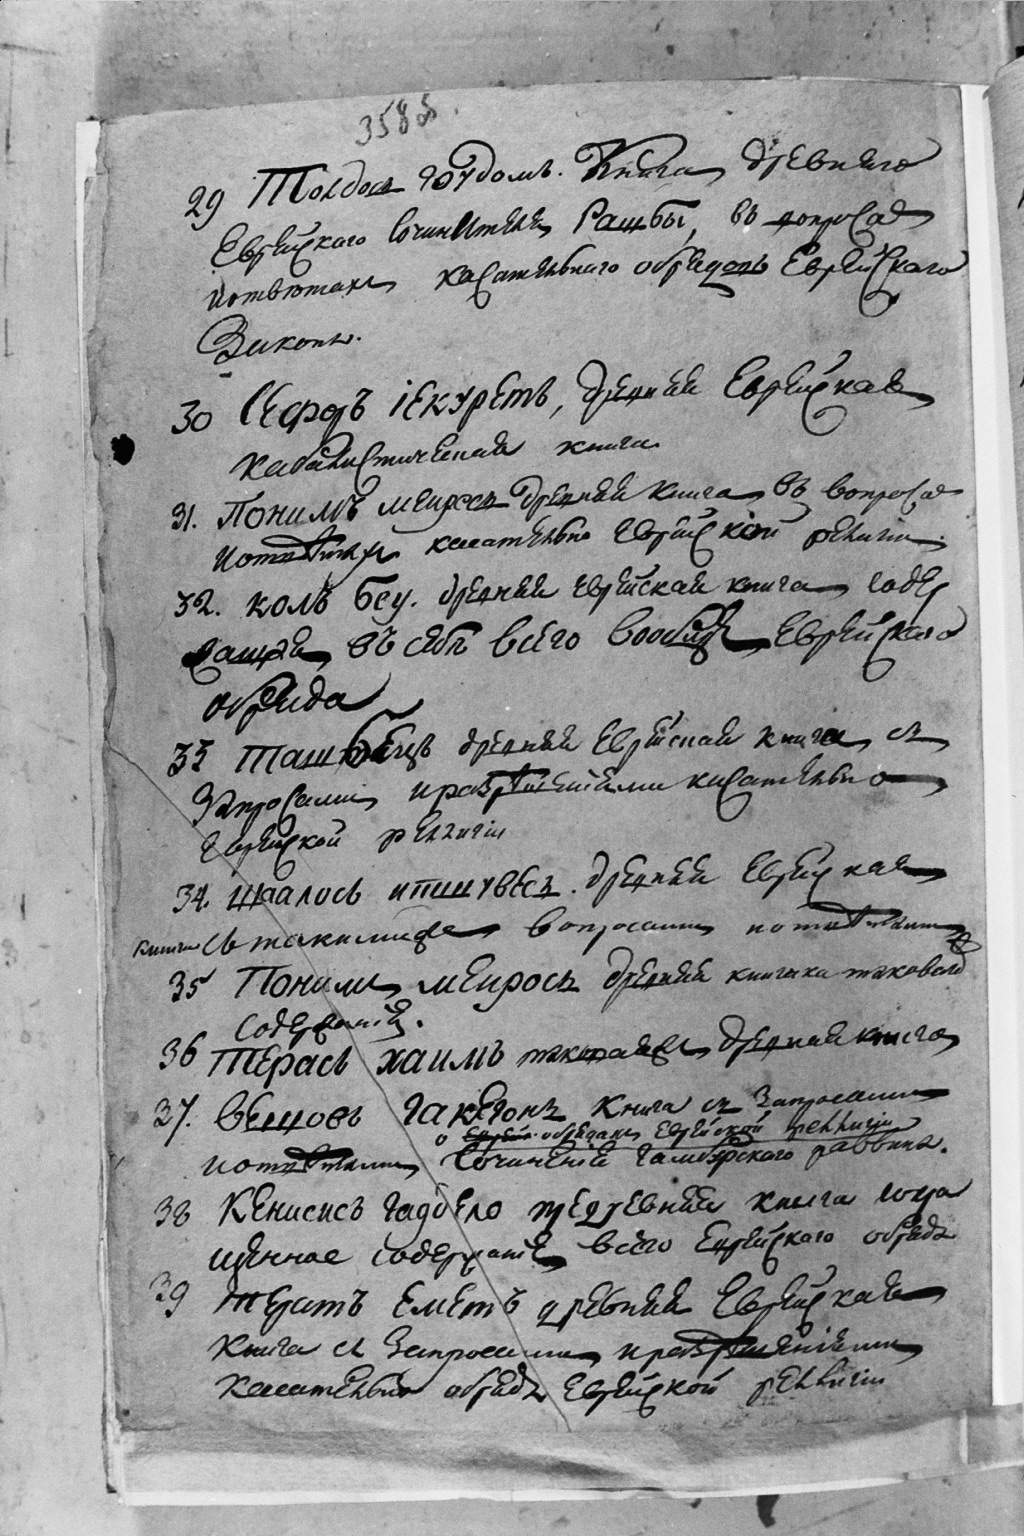 358 об.
29 Толдось гоудомъ. Книга древняго
Еврейскаго Сочинителя Рашбы, въ вопросах
и ответахъ касательнаго обрядовъ Еврейскаго
Закона.
30 Сефръ іекуретъ, древняя Еврейская
кабалистическая книга
31. Понимъ меиросъ древняя книга въ вопросах
и ответахъ касательно Еврейской религіи.
32. колъ боу. древняя еврейская книга содер
жащая въ себѣ всего вообще Еврейскаго
обряда
33 ташбецъ древняя Еврейская книга съ
Запросами и разрѣшеніями касательно
Еврейской религіи
34. шаалось итшувесъ. древняя Еврейская
книга съ таковыми же вопросами и ответами
35 Понимъ меиросъ древняя книжка таковаго
содержанія.
36 Терась хаимъ таковая древная книга
37. Бешовъ гакегонъ книга съ Запросами
о обрядахъ Еврейской религіи
и ответами Сочиненія Гамбурского раввина.
38 Кенисись гадоело древняя книга сокра
щенное содержаніе всего Еврейскаго обряда
39 терать еметъ древняя Еврейская
книга съ Запросами и разрѣшеніями
касательно обряда Еврейской религіи